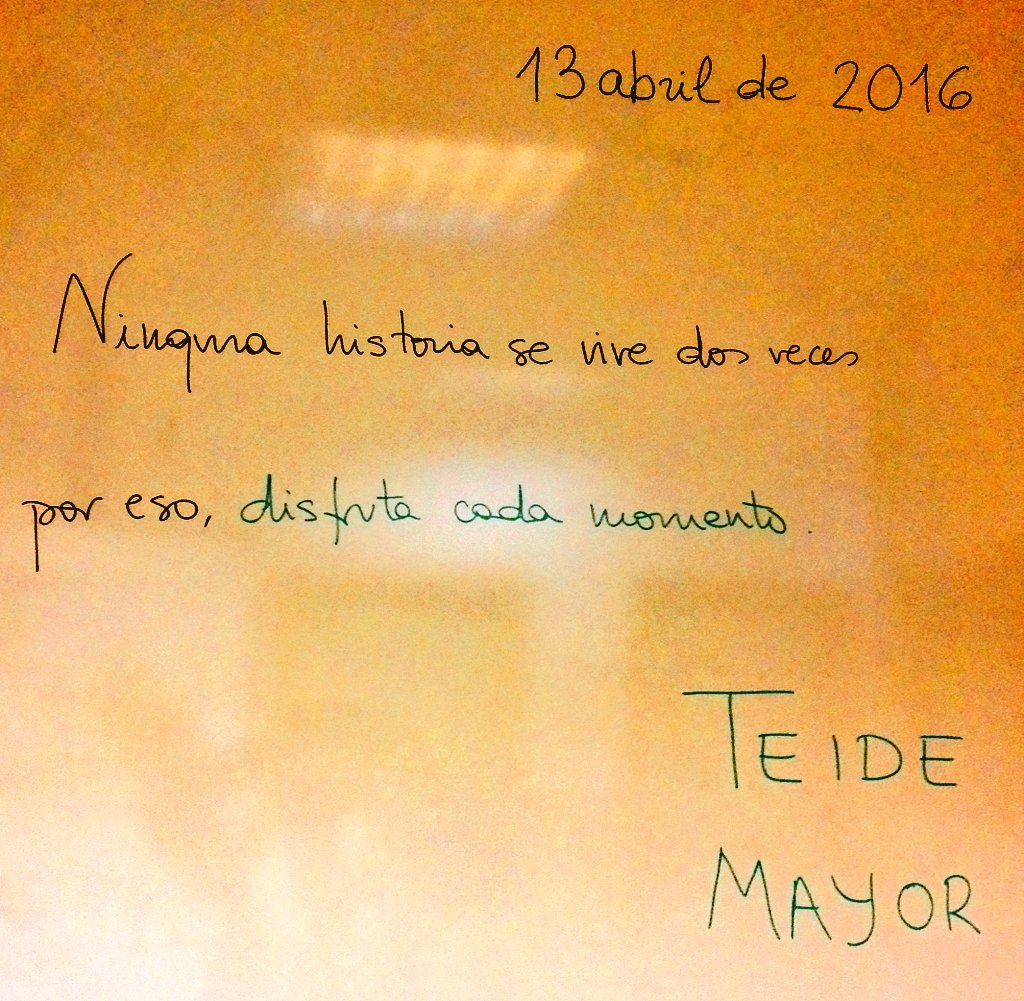 13 abril de 2016
Ninguna historia se vive dos veces
por eso, disfruta cada momento.
TEIDE
MAYOR